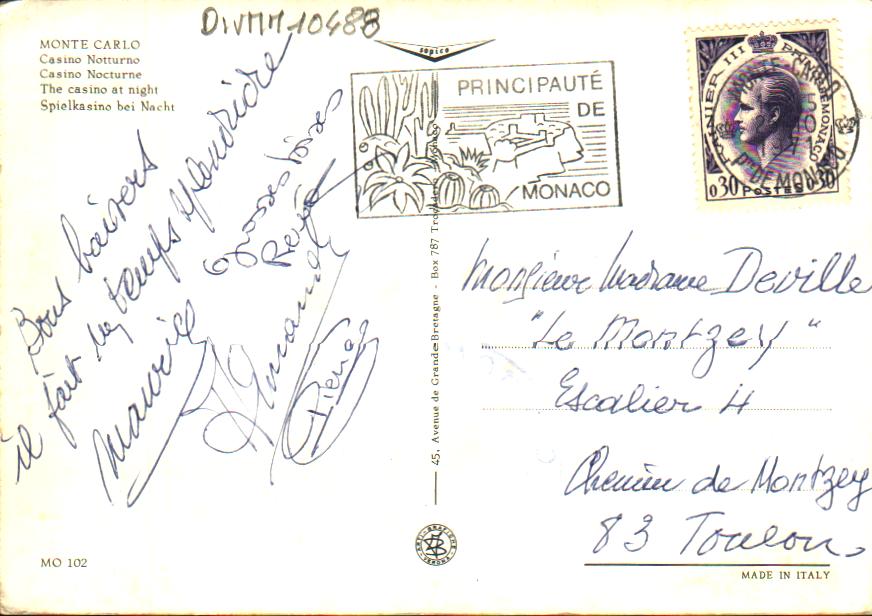 DIVMM10488
MONTE CARLO
Casino Notturno
Casino Nocturne
The casino at night
Spielkasino bei Nacht
sapico
PRINCIPAUTÉ
DE
MONACO
RAINIER III PRINCE DE MONACO
0,30 POSTES 0,30
MONTE-CARLO
PTE DE MONACO
Bons baisers
il fait un temps splendide
Maurice
Grosses bises
René
Armand
Pierre
45, Avenue de Grande-Bretagne - Box 787 Monaco
Monsieur Madame Deville
"Le Montzey"
Escalier 4
Chemin de Montzey
83 Toulon.
MO 102
MADE IN ITALY